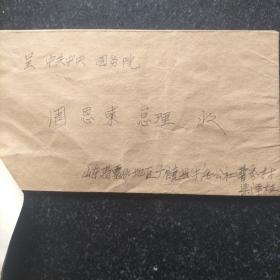 呈 中共中央 国务院
周恩来 总理 收
山东省惠民地区广饶县牛庄公社曹